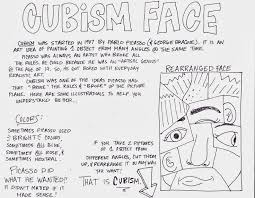 CUBISM FACE
CUBISM WAS STARTED IN 1907 BY PABLO PICASSO (& GEORGE BRAQUE). IT IS AN
ART IDEA OF PAINTING 1 OBJECT FROM MANY ANGLES @ THE SAME TIME.
PICASSO WAS ALWAYS AN ARTIST WHO BROKE ALL
THE RULES. HE COULD BECAUSE HE WAS AN "ARTISTIC GENIUS"
@ THE AGE OF 13, SO, HE GOT BORED WITH EVERYDAY
REALISTIC ART.
CUBISM WAS ONE OF THE IDEAS PICASSO HAD
THAT "BROKE" THE RULES & "BROKE" UP THE PICTURE
PLANE. HERE ARE SOME ILLUSTRATIONS TO HELP YOU
UNDERSTAND BETTER...
REARRANGED FACE
COLORS:
SOMETIMES PICASSO USED
BRIGHT COLORS
SOMETIMES ALL BLUE,
SOMETIMES ALL ROSE, &
SOMETIMES NEUTRAL.
PICASSO DID
WHAT HE WANTED!!
IT DIDN'T MATTER IF IT
MADE SENSE!
IF YOU TAKE 2 PICTURES
OF 1 OBJECT FROM
DIFFERENT ANGLES, CUT THEM
UP, & REARRANGE IT ALL
WRONG...
THAT IS CUBISM.